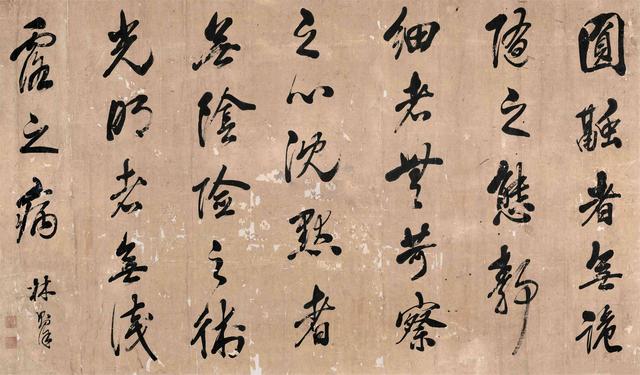 圓融者無詭
隨之態靜
細者無苛察
之心沈默者
無陰險之術
光明者無淺
露之病
林